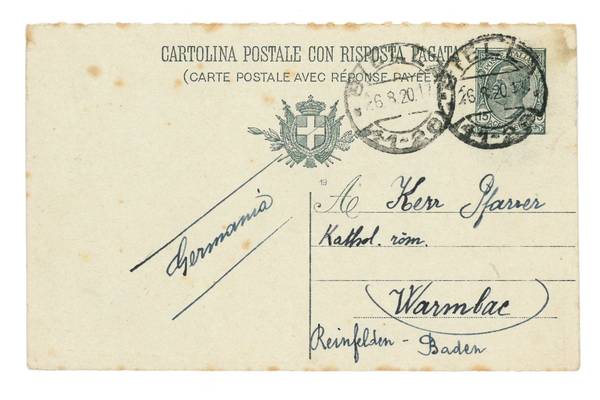 CARTOLINA POSTALE CON RISPOSTA PAGATA
(CARTE POSTALE AVEC RÉPONSE PAYÉE)
26.8.20.17
(11-26)
26.8.20.17
(11-26)
15
19
A Herr Pfarrer
Kathol. röm.
Germania
Warmbac
Reinfelden - Baden